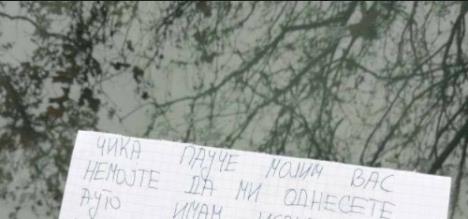 ЧИКА ПАУЧЕ МОЛИМ ВАС
НЕМОЈТЕ ДА МИ ОДНЕСЕТЕ
АУТО ИМАМ